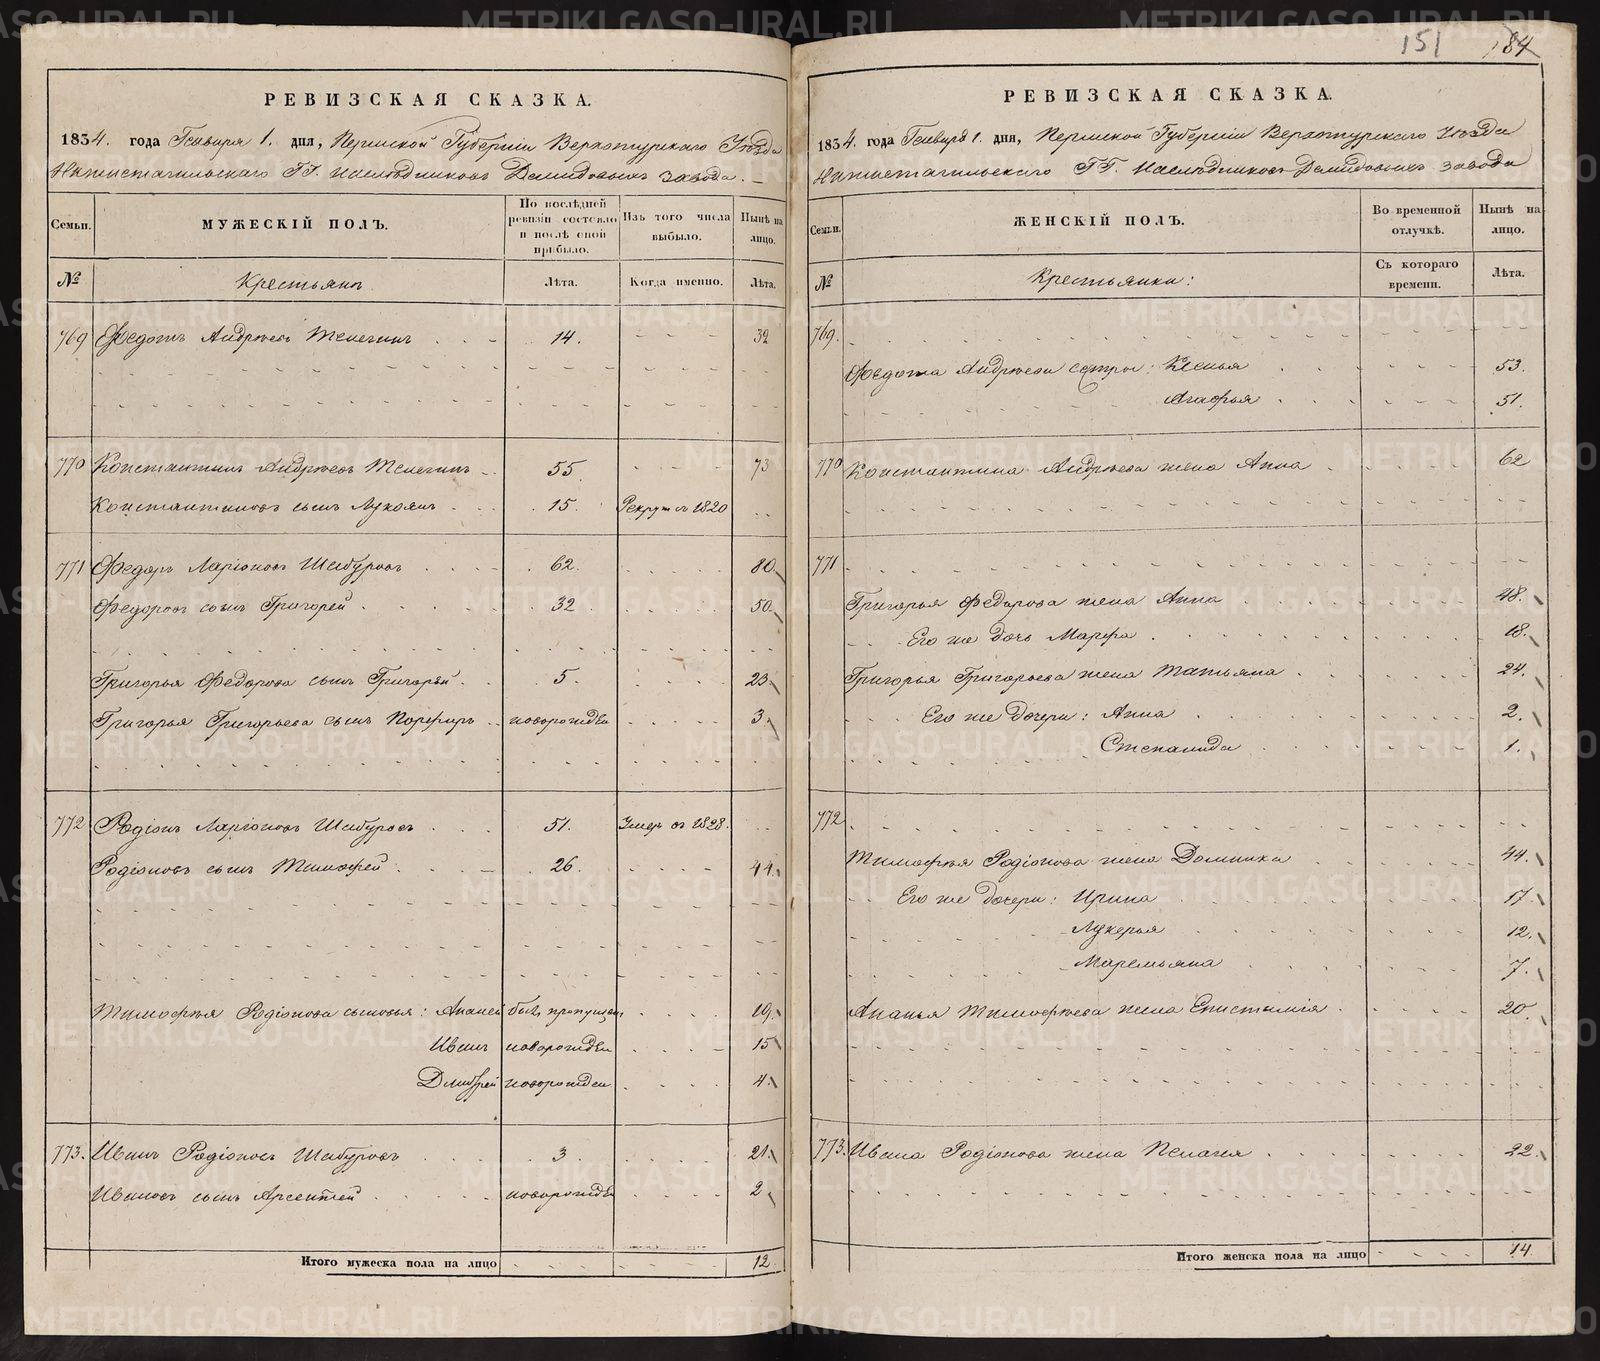 151 184
РЕВИЗСКАЯ СКАЗКА.
1834. года Генваря 1. дня, Пермской Губерніи Верхотурскаго Уѣзда
Нижнетагильскаго ГГ. Наслѣдниковъ Демидовыхъ завода.
Семьи.
МУЖЕСКІЙ ПОЛЪ.
По послѣдней ревизіи состояло и послѣ оной прибыло.
Изъ того числа выбыло.
Нынѣ на лицо.
№
Крестьянъ
Лѣта.
Когда именно.
Лѣта.
769 Федотъ Андреевъ Телегинъ 14. 32
770 Константинъ Андреевъ Телегинъ 55 73
Константиновъ сынъ Лукоянъ 15. Рекрутъ въ 1820
771 Федоръ Ларіоновъ Шабуровъ 62. 80
Федоровъ сынъ Григорей 32 50
Григорья Федорова сынъ Григорей 5. 23
Григорья Григорьева сынъ Порфиръ новорожден 3
772 Родіонъ Ларіоновъ Шабуровъ 51. Умеръ въ 1828.
Родіоновъ сынъ Тимофей 26. 44
Тимофѣя Родіонова сыновья: Ананей былъ пропущен 19
Иванъ новорожден 15
Дмитрей новорожден 4
773. Иванъ Родіоновъ Шабуровъ 3 21
Ивановъ сынъ Арсентей новорожден 2
Итого мужеска пола на лицо 12.
РЕВИЗСКАЯ СКАЗКА.
1834. года Генваря 1. дня, Пермской Губерніи Верхотурскаго Уѣзда
Нижнетагильскаго ГГ. Наслѣдниковъ Демидовыхъ завода
Семьи.
ЖЕНСКІЙ ПОЛЪ.
Во временной отлучкѣ.
Нынѣ на лицо.
№
Крестьянки:
Съ котораго времени.
Лѣта.
769.
Федота Андреева сестры: Ксенья 53.
Агафья 51.
770 Константина Андреева жена Анна 62
771
Григорья Федорова жена Анна 48.
Его же дочь Марфа 18.
Григорья Григорьева жена Татьяна 24.
Его же дочери: Анна 2.
Степанида 1.
772
Тимофѣя Родіонова жена Домника 44.
Его же дочери: Ирина 17
Лукерья 12.
Маремьяна 7.
Ананья Тимофѣева жена Епистимія 20
773. Ивана Родіонова жена Пелагея 22
Итого женска пола на лицо 14
METRIKI.GASO-URAL.RU